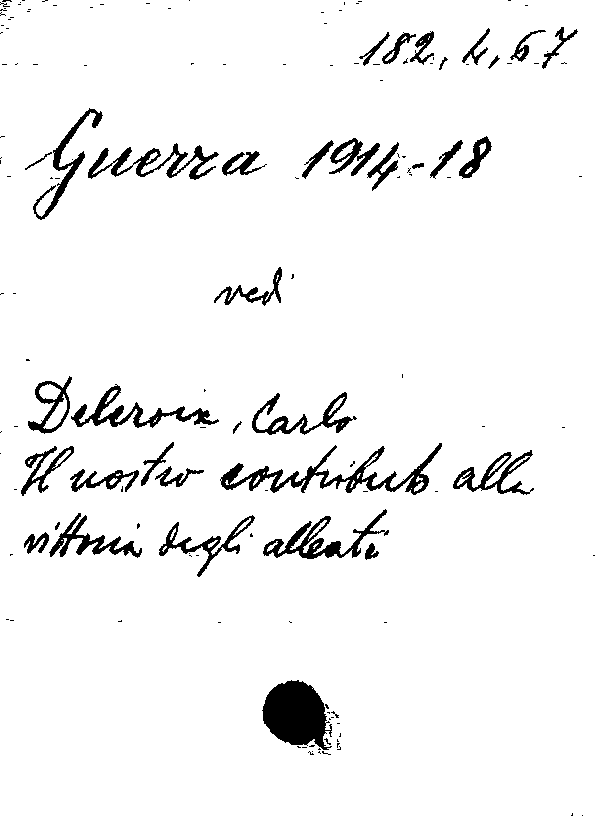 182.4.67
Guerra 1914-18
vedi
Delcroix, Carlo
Il nostro contributo alla
vittoria degli alleati